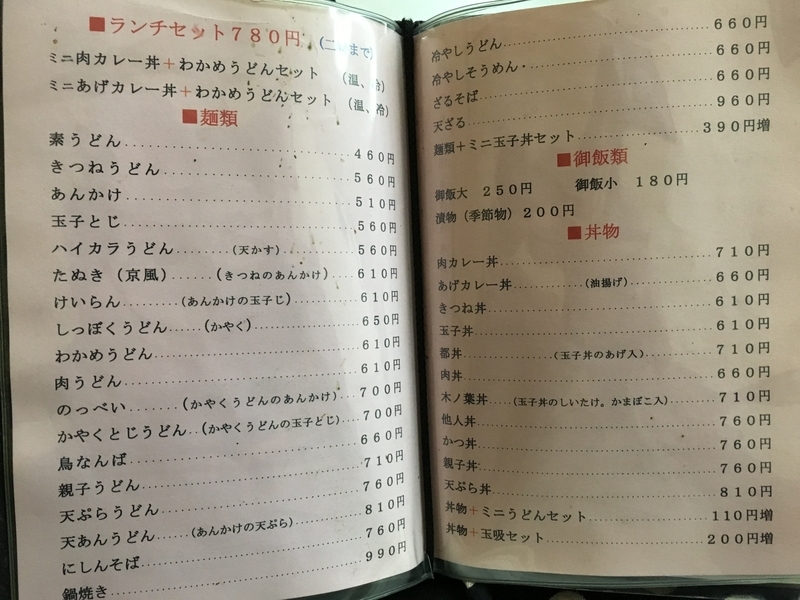 ■ランチセット７８０円 (二 まで)
ミニ肉カレー丼＋わかめうどんセット （温、冷）
ミニあげカレー丼＋わかめうどんセット （温、冷）
■麺類
素うどん..............................４６０円
きつねうどん..........................５６０円
あんかけ..............................５１０円
玉子とじ..............................５６０円
ハイカラうどん........（天かす）......５６０円
たぬき（京風）......（きつねのあんかけ）...６１０円
けいらん........（あんかけの玉子じ）.......６１０円
しっぽくうどん......（かやく）.............６５０円
わかめうどん..........................６１０円
肉うどん..............................６１０円
のっぺい........（かやくうどんのあんかけ）...７００円
かやくとじうどん..（かやくうどんの玉子とじ）...７００円
鳥なんば..............................６６０円
親子うどん............................７１０円
天ぷらうどん..........................７６０円
天あんうどん......（あんかけの天ぷら）......８１０円
にしんそば............................７６０円
鍋焼き................................９９０円
冷やしうどん..........................６６０円
冷やしそうめん・......................６６０円
ざるそば..............................６６０円
天ざる................................９６０円
麺類＋ミニ玉子丼セット................３９０円増
■御飯類
御飯大 ２５０円 御飯小 １８０円
漬物（季節物）２００円
■丼物
肉カレー丼............................７１０円
あげカレー丼............（油揚げ）.....６６０円
きつね丼..............................６１０円
玉子丼................................６１０円
都丼..............（玉子丼のあげ入）...７１０円
肉丼..................................６６０円
木ノ葉丼....（玉子丼のしいたけ。かまぼこ入）...７１０円
他人丼................................７６０円
かつ丼................................７６０円
親子丼................................７６０円
天ぷら丼..............................８１０円
丼物＋ミニうどんセット................１１０円増
丼物＋玉吸セット......................２００円増